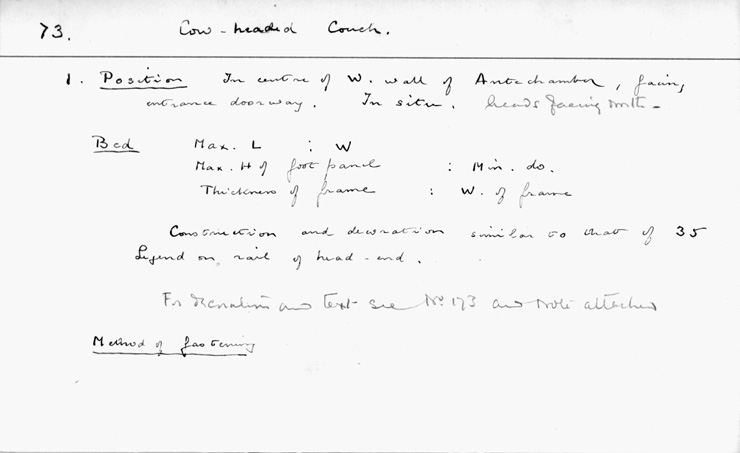 73. Cow-headed Couch.
1. Position In centre of W. wall of Antechamber, facing
entrance doorway. In situ. heads facing north -
Bed Max. L : W
Max. H of foot panel : Min. do.
Thickness of frame : W. of frame
Construction and decoration similar to that of 35
Legend on rail of head-end.
For decoration and text see No 173 and note attached
Method of fastening